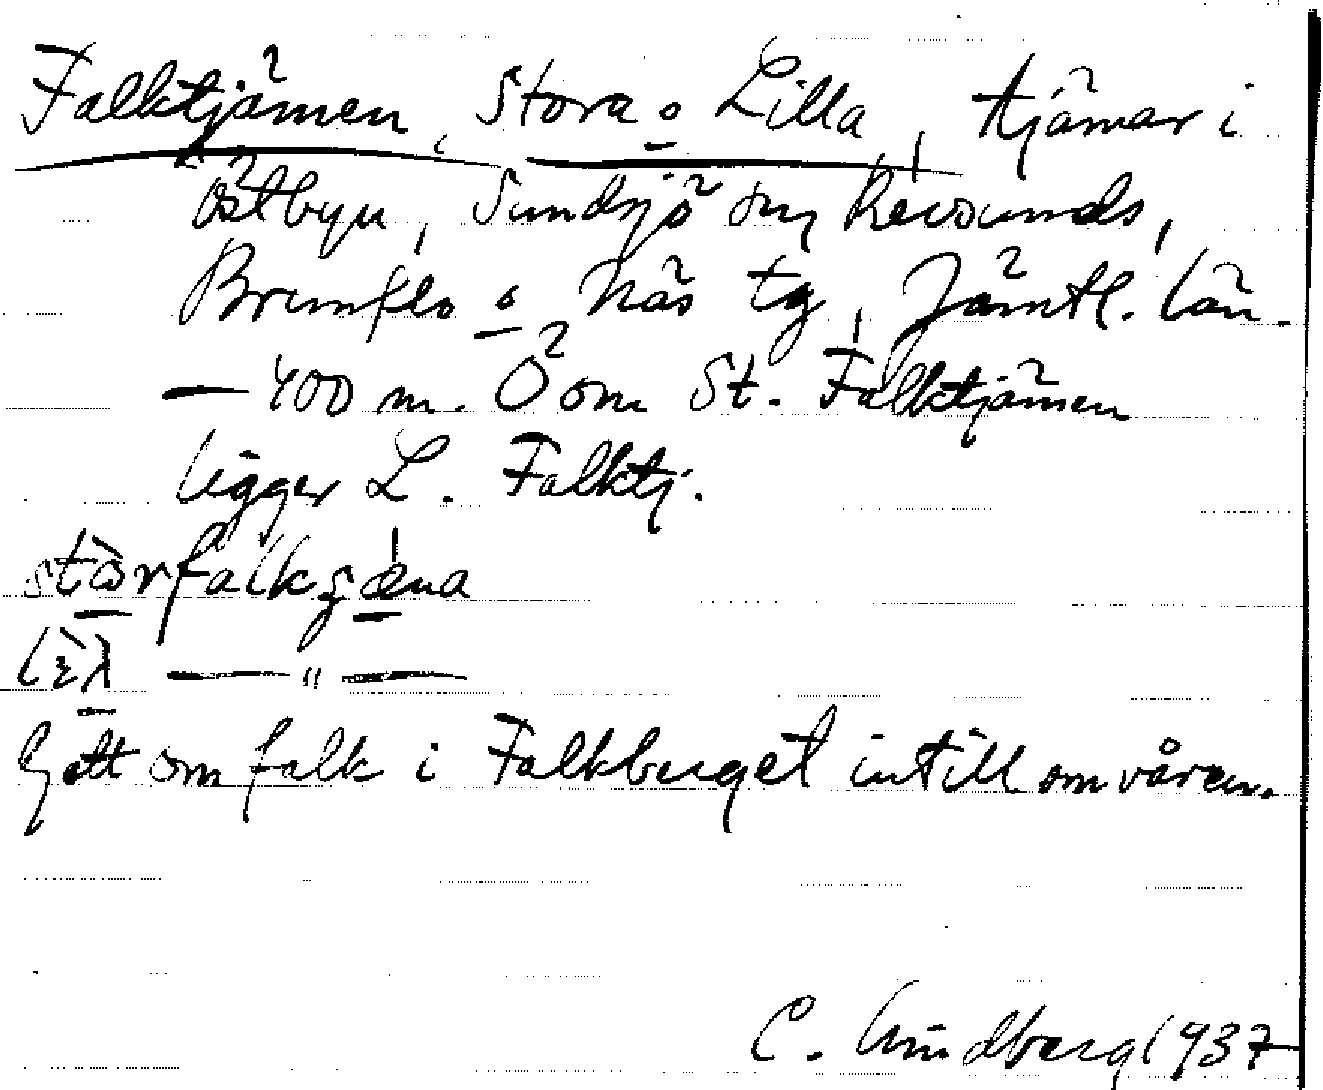 Falktjärnen, Stora o Lilla, tjärnar i
Östbyn, Sundsjö sn, Revsunds,
Brunflo o Näs tg, Jämtl. län.
— 400 m. Ö om St. Falktjärnen
ligger L. Falktj.
falk
— " —
Gott om falk i Falkberget intill om våren.
C. Lindberg 1937